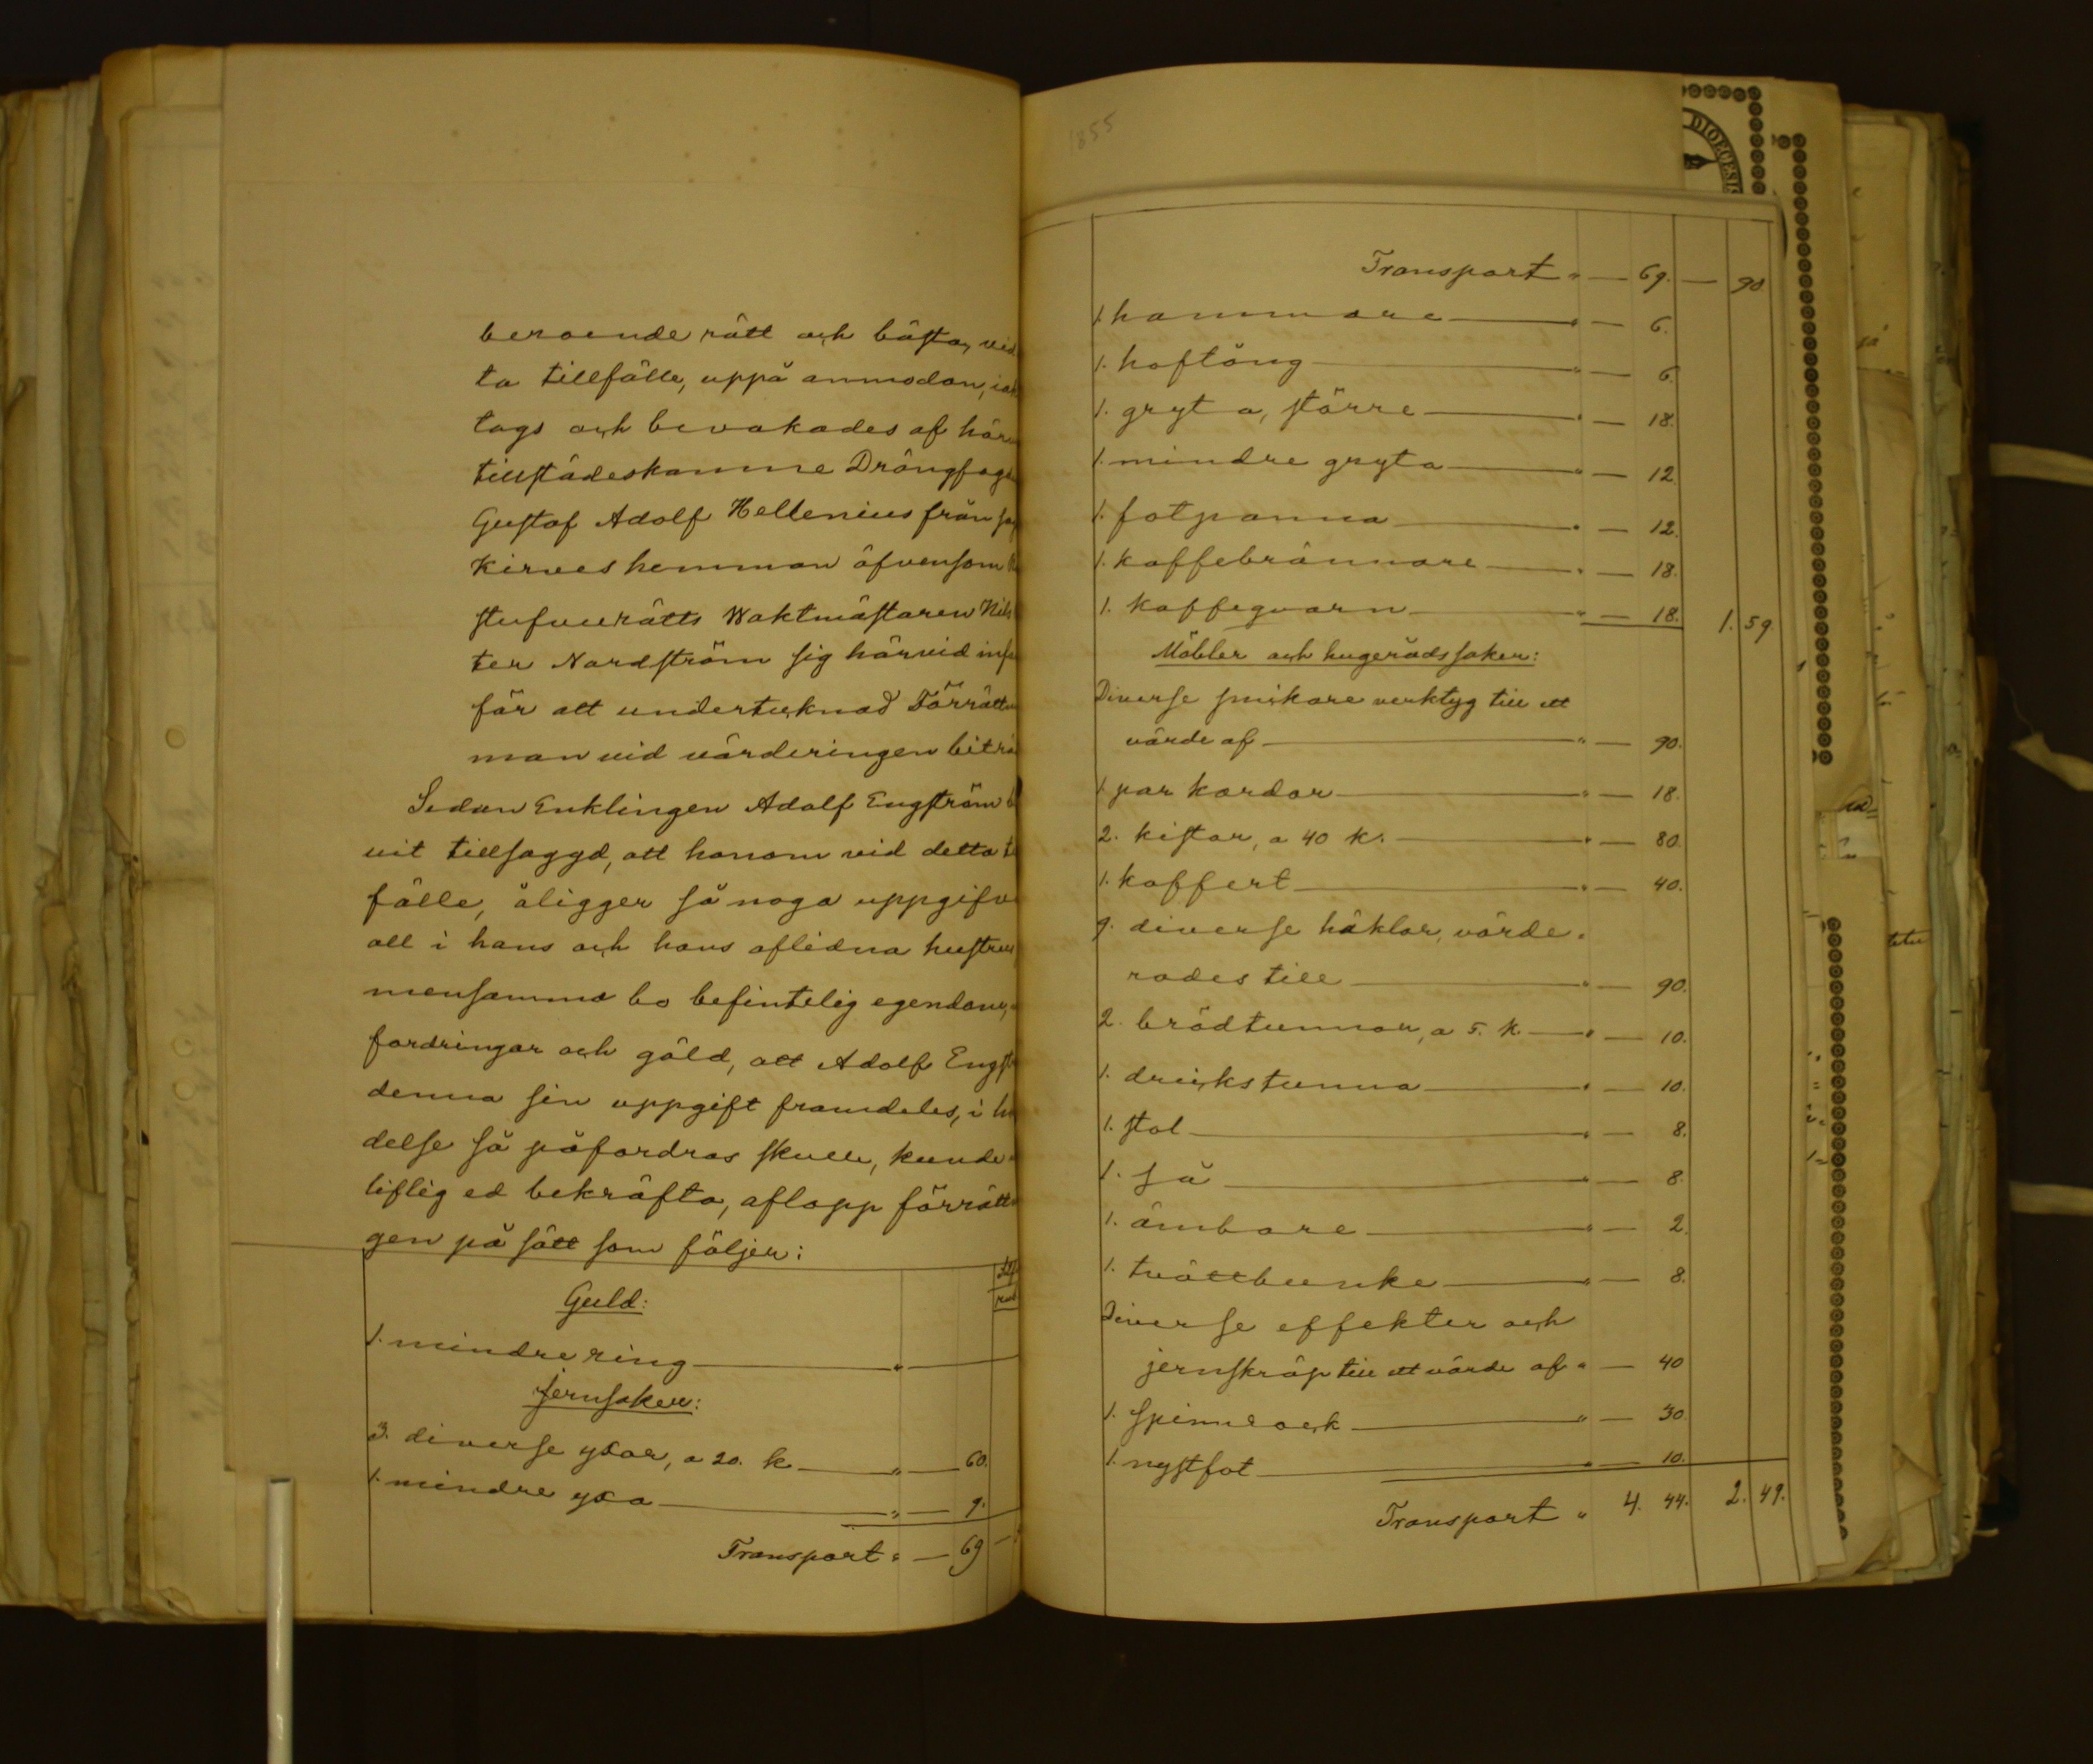 beroende rätt och bästa, vid
ta tillfälle, uppå anmodan,
togs och bevakades af
tillstädeskomne
Gustaf Adolf Hellenius från
Kirves hemman äfvensom
stufvurätts Waktmästaren
ter Nordström sig härvid
för att undertecknad
man vid värderingen
Sedan Enklingen Adolf Engström
vit tillsaggd, att honom vid detta
fälle, åligger så noga
all i hans och hans aflidna
mensamma bo befintelig egendom,
fordringar och gäld, att Adolf
denna sin uppgift framdeles, i
delse så påfordras skulle, kunde
liflig ed bekräfta, aflopp
gen på sätt som följer:
Guld:
1. mindre ring — "
Jernsaker:
3. diverse yxor, a 20. k — " — 60.
1. mindre yxa — " — 9.
Transport " — 69
1855
DIOECESIS
Transport " — 69. — 90
1. hammare — " — 6.
1. hoftång — " — 6.
1. gryta, större — " — 18.
1. mindre gryta — " — 12.
1. fotpanna — " — 12.
1. kaffebrännare — " — 18.
1. kaffeqvarn — " — 18. 1. 59.
Möbler och husgerådssaker:
Diverse snickare verktyg till ett
värde af — " — 90.
1 par kardor — " — 18.
2. kistor, a 40 k. — " — 80.
1. koffert — " — 40.
9. diverse häklor, värde-
rades till — " — 90.
2. brödtunnor, a 5. k. — " — 10.
1. drickstunna — " — 10.
1. stol — " — 8.
1. så — " — 8.
1. ämbare — " — 2.
1. tvättbunke — " — 8.
Diverse effekter och
jernskräp till ett värde af " — 40
1. Spinnrock — " — 30.
1. nystfot — " — 10.
Transport " 4. 44. 2. 49.